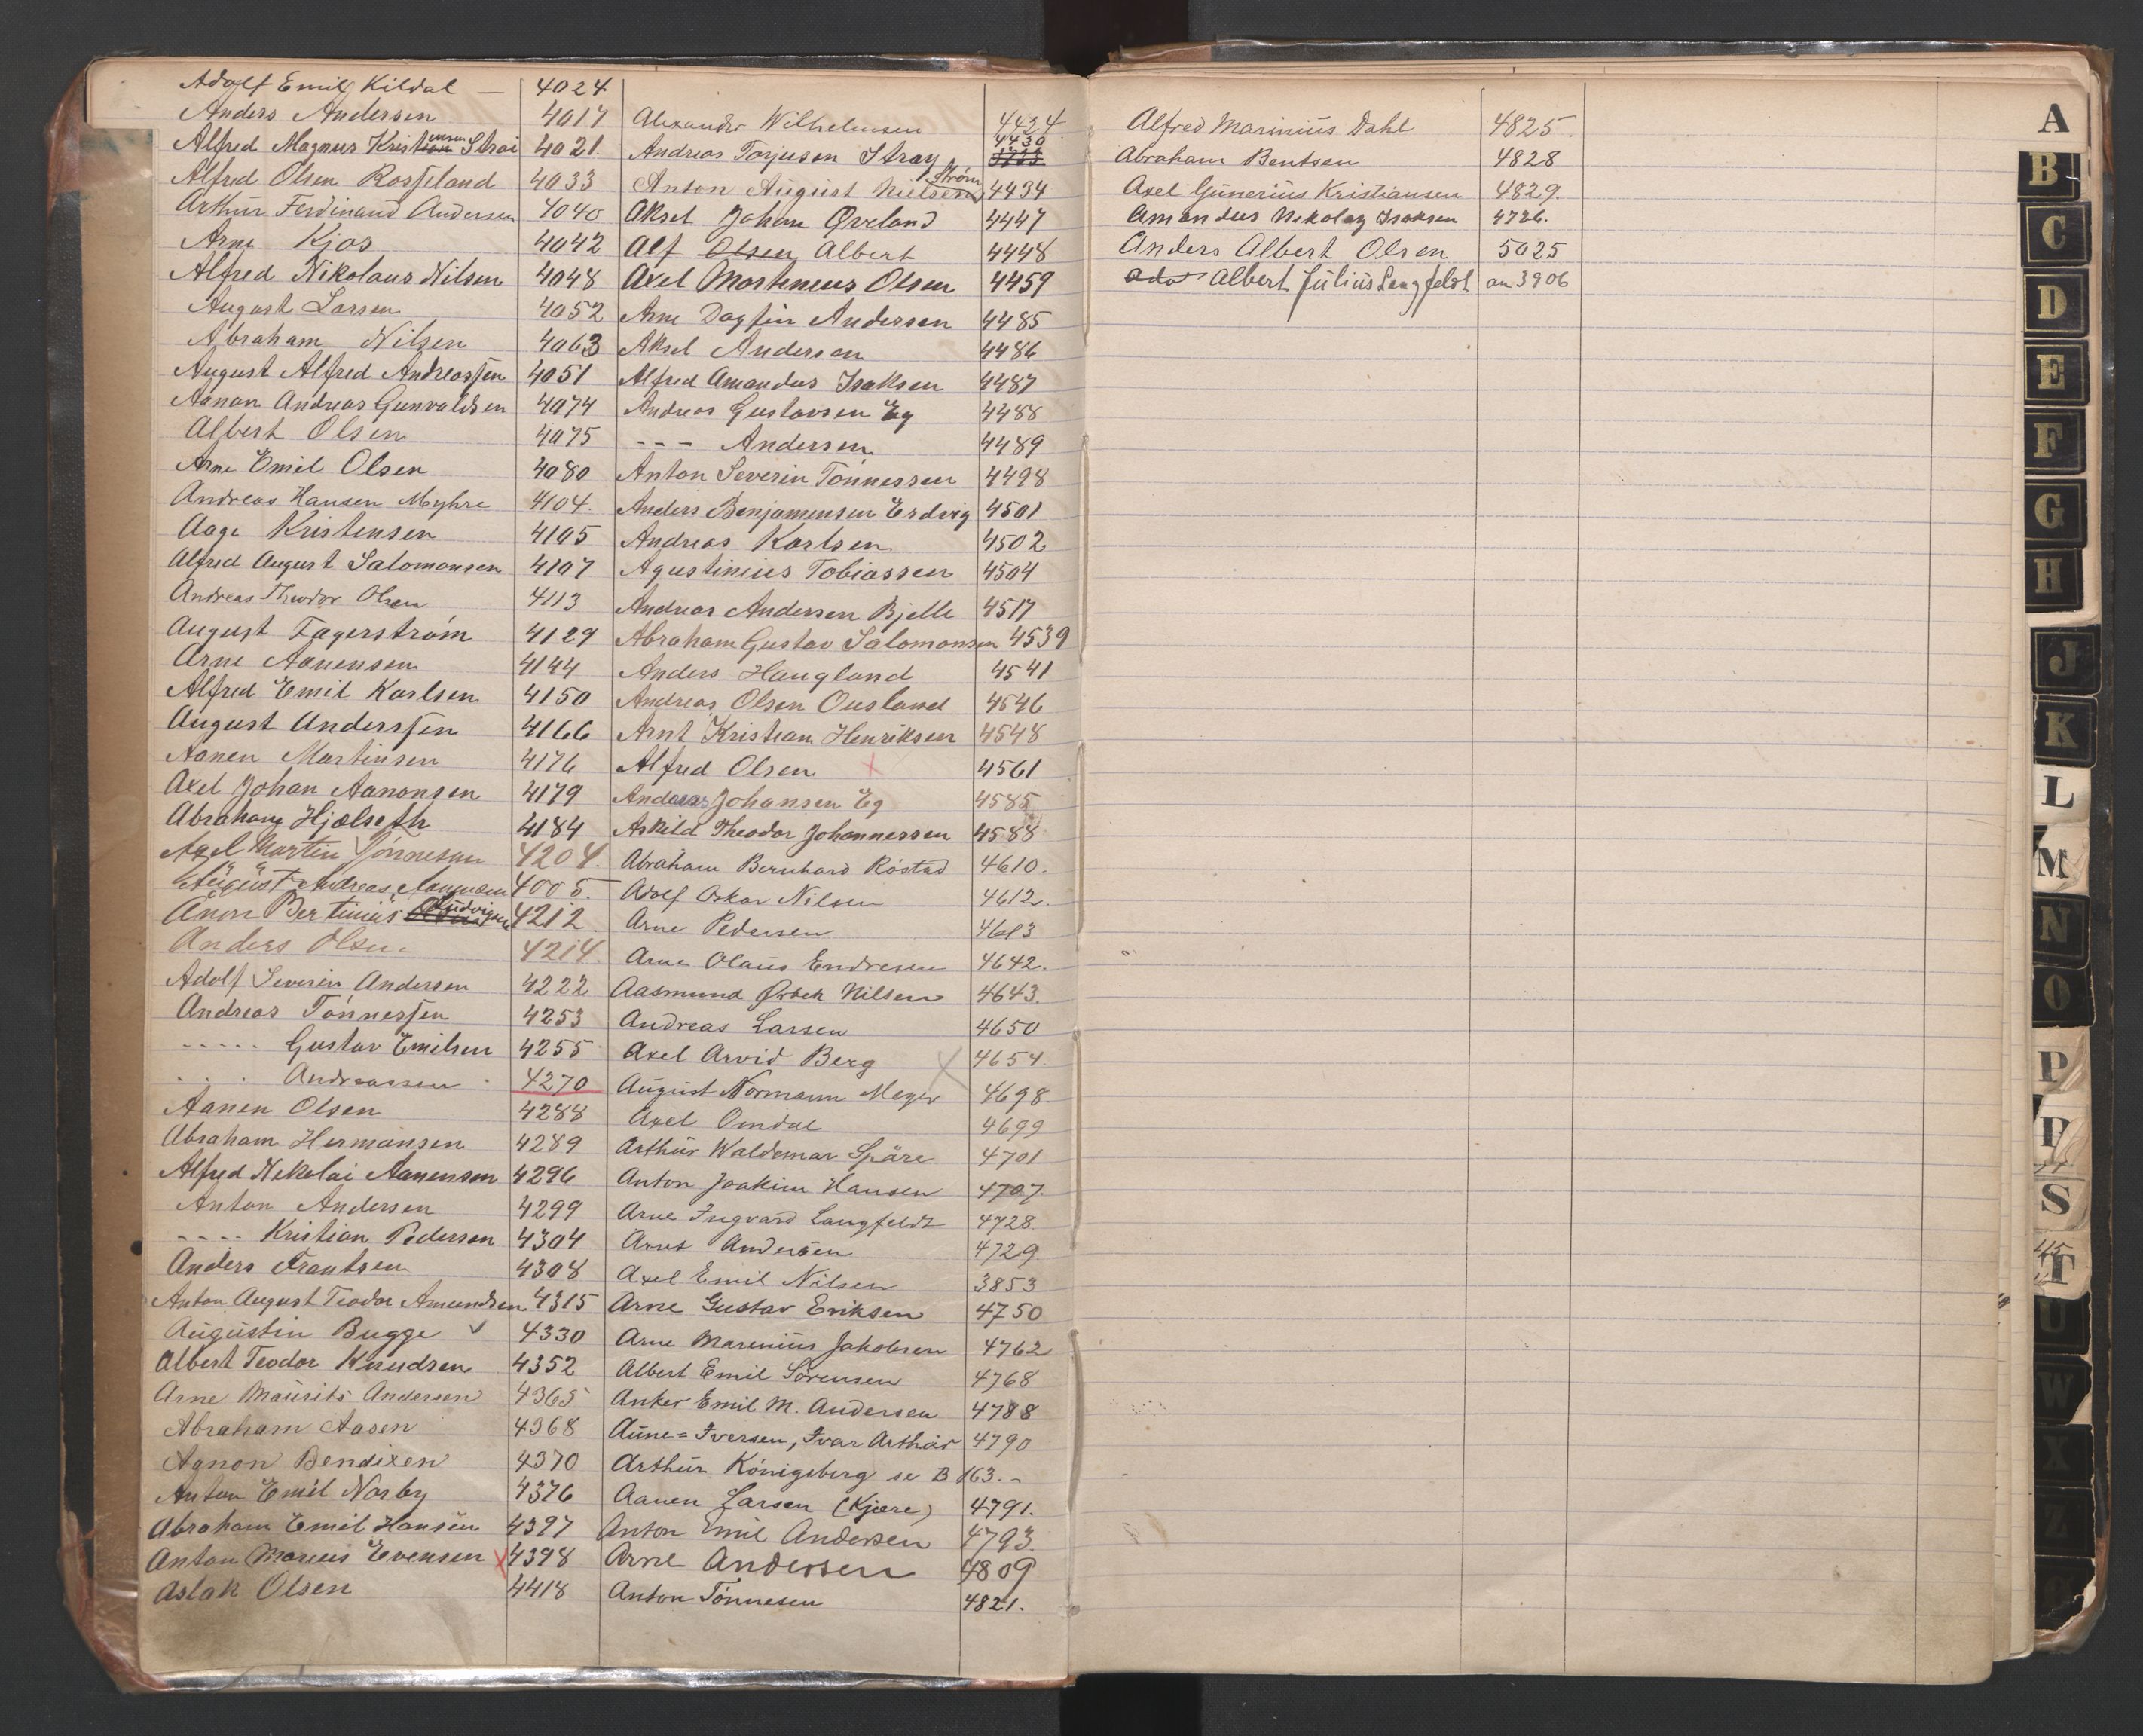 Adolf Emil Kildal — 4024
Anders Andersen 4017
Alfred Magnus Kristiansen Strai 4021
Alfred Olsen Rosseland 4033
Arthur Ferdinand Andersen 4040
Arne Kjos 4042
Alfred Nikolaus Nilsen 4048
August Larsen 4052
Abraham Nilsen 4063
August Alfred Andreassen 4051
Aanon Andreas Gunvaldsen 4074
Albert Olsen 4075
Arne Emil Olsen 4080
Andreas Hansen Myhre 4104.
Aage Kristensen 4105
Alfred August Salomonsen 4107
Andreas Theodor Olsen 4113
August Fagerström 4129
Arne Aanensen 4144
Alfred Emil Karlsen 4150
August Anderssen 4166
Aanen Martinsen 4176
Axel Johan Aanonsen 4179
Abraham Hjælseth 4184
Axel Martin Tönnesen 4204.
August Andreas Aanensen 4005.
Anon Bertinius Ludvigsen 4212.
Anders Olsen 4214.
Adolf Severin Andersen 4222
Andreas Tönnessen 4253
----- Gustav Emilsen 4255
. . . Andreassen 4270
Aanen Olsen 4288
Abraham Hermansen 4289
Alfred Nikolai Aanensen 4296
Anton Andersen 4299
---- Kristian Pedersen 4304
Anders Frantsen 4308
Anton August Teodor Amundsen 4315
Augustin Bugge ✓ 4330
Albert Teodor Knudsen 4352
Arne Maurits Andersen 4365
Abraham Aasen 4368
Agnon Bendixen 4370
Anton Emil Norby 4376
Abraham Emil Hansen 4397
Anton Marius Evensen x 4398
Aslak Olsen 4418
Alexander Wilhelmsen 4424
Andreas Torjusen Stray 4430
Anton August Nielsen Ström 4434
Aksel Johan Øveland 4447
Alf Olsen Albert 4448
Axel Martenius Olsen 4459
Arne Dagfin Andersen 4485
Aksel Andersen 4486
Alfred Amandus Isaksen 4487
Andreas Gustavsen Eg 4488
--- Andersen 4489
Anton Severin Tönnessen 4498
Anders Benjamensen Erdvig 4501
Andreas Karlsen 4502
Agustinius Tobiassen 4504
Andreas Andersen Bjelle 4517
Abraham Gustav Salomonsen 4539
Anders Haugland 4541
Andreas Olsen Ousland 4546
Arnt Kristian Henriksen 4548
Alfred Olsen x 4561
Andreas Johansen Eg 4585
Askild Theodor Johannessen 4588
Abraham Bernhard Röstad 4610.
Adolf Oskar Nilsen 4612.
Arne Pedersen 4613
Arne Olaus Endresen 4642.
Aasmund Ørbek Nilsen 4643.
Andreas Larsen 4650
Axel Arvid Berg x 4654.
August Normann Meyer 4698
Axel Omdal 4699
Arthur Waldemar Späre 4701
Anton Joakim Hansen 4707.
Arne Ingvard Langfeldt 4728
Arnt Andersen 4729.
Axel Emil Nilsen 3853
Arne Gustav Eriksen 4750
Arne Marenius Jakobsen 4762
Albert Emil Sörensen 4768
Anker Emil M. Andersen 4788
Aune=Iversen, Ivar Arthur 4790
Arthur Königsberg se B 163.-
Aanen Larsen (Kjære) 4791.
Anton Emil Andersen 4793.
Arne Andersen 4809
Anton Tönnesen 4821.
Alfred Marinius Dahl 4825.
Abraham Bentsen 4828
Axel Gunerius Kristiansen 4829.
Amandus Nikolay Isaksen 4726.
Anders Albert Olsen 5025
Adv Albert Julius Langfeldt an 3906
A
B
C
D
E
F
G
H
J
K
L
M
N
O
P
R
S
T
U
W
X
Z